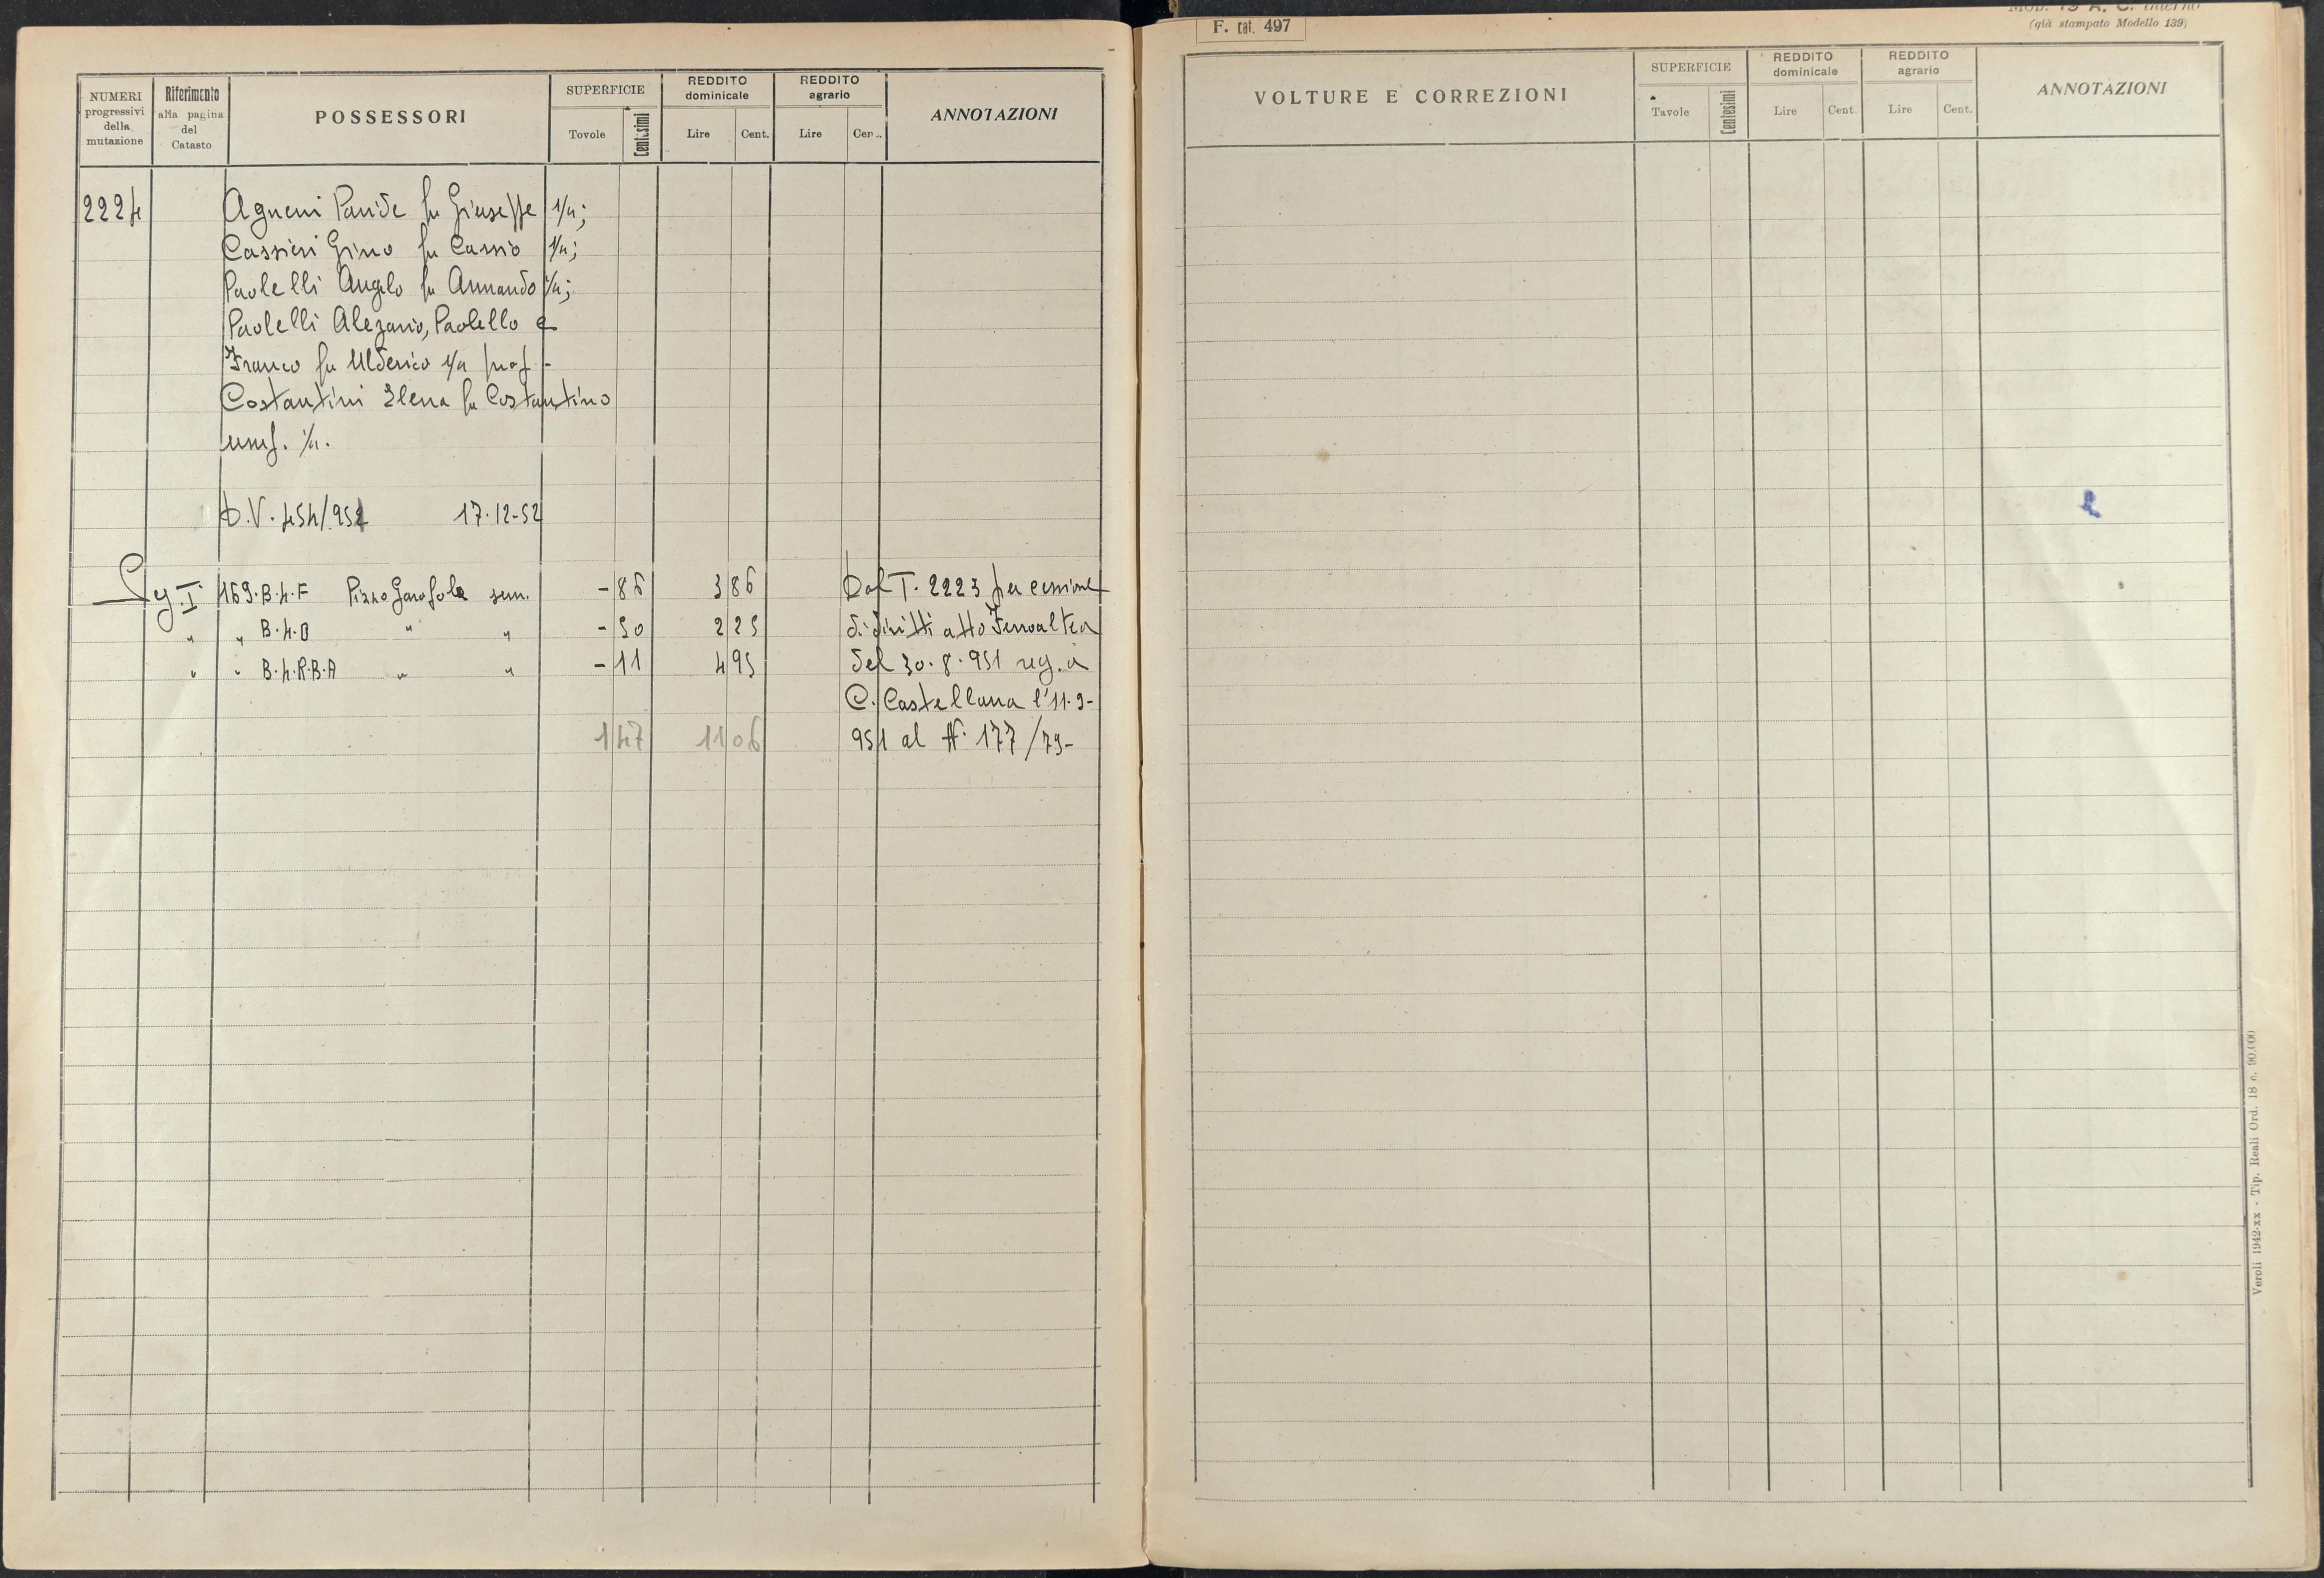 NUMERI progressivi della mutazione
Riferimento alla pagina del Catasto
POSSESSORI
SUPERFICIE
Tavole Centesimi
REDDITO dominicale
Lire Cent.
REDDITO agrario
Lire Cen..
ANNOTAZIONI
2224 Agneni Paride fu Giuseppe 1/4;
Cassieri Gino fu Cassio 1/4;
Paolelli Angelo fu Armando 1/4;
Paolelli Alezario, Paolello e
Franco fu Ulderico 1/4 prop-
Costantini Elena fu Costantino
usuf. 1/4.
D.V. 454/952 17-12-52
169.B.4.F sem. - 86 3 86 Dal T. 2223 per cessione
" " B.4.O " " - 50 2 25 di diritti atto
" " B.4.R.B.A " " - 11 4 95 del 30.8.951 reg. a
C. Castellana l'11-9-
1 47 11 06 951 al N. 177/79-
F. cat. 497
MOD. 19 A. C. interno
(già stampato Modello 139)
VOLTURE E CORREZIONI
SUPERFICIE
Tavole Centesimi
REDDITO dominicale
Lire Cent.
REDDITO agrario
Lire Cent.
ANNOTAZIONI
Veroli 1942-XX - Tip. Reali Ord. 18 c. 90.000